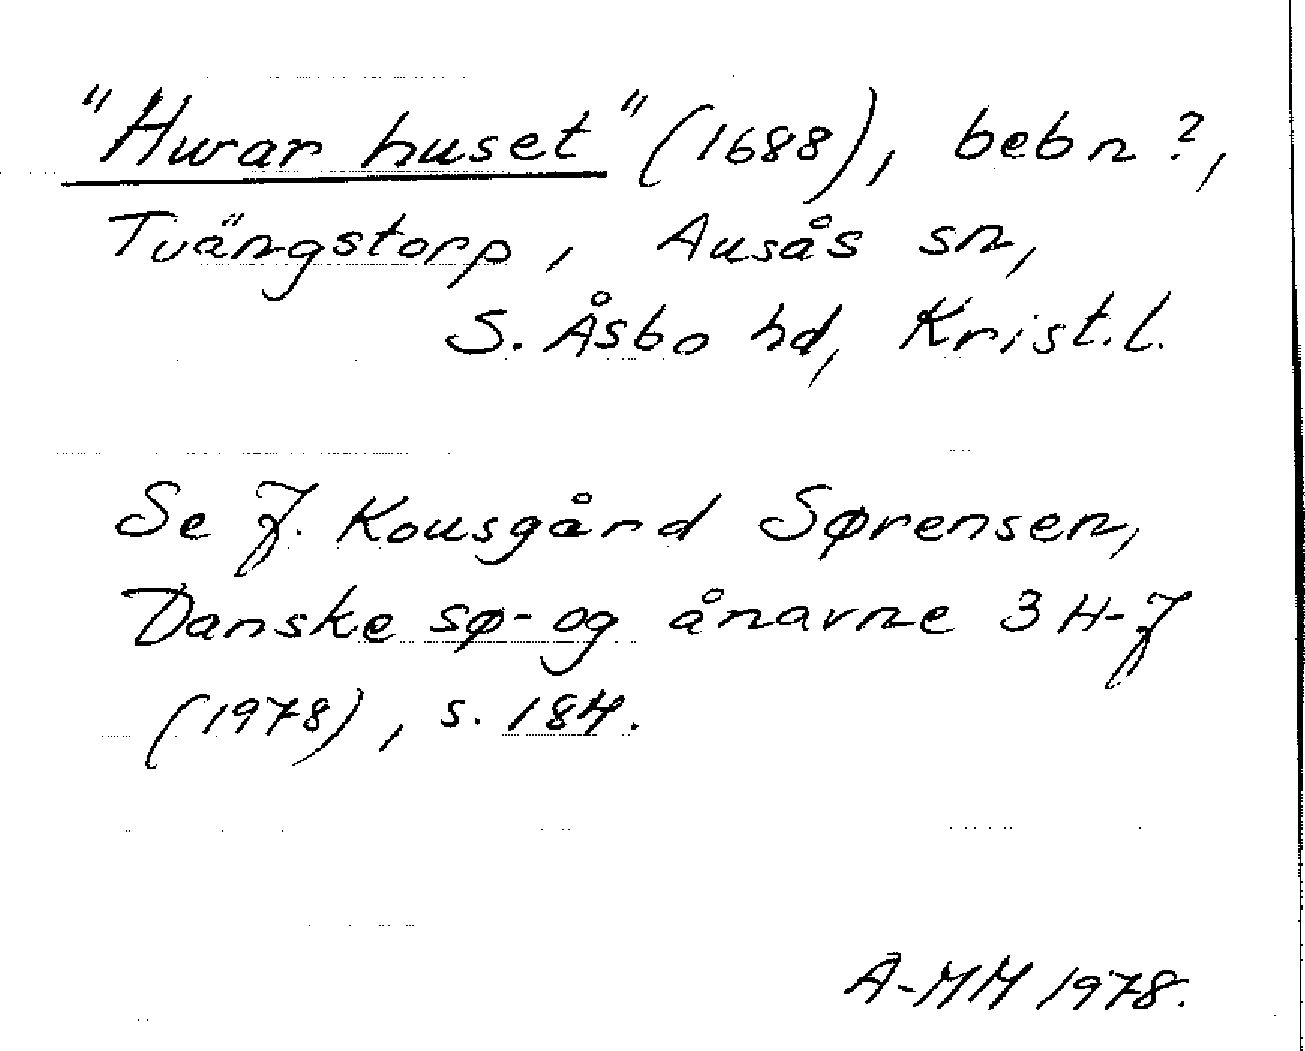 "Hwar huset" (1688), bebn?,
Tvängstorp, Ausås sn,
S. Åsbo hd, Krist.l.
Se J. Kousgård Sørensen,
Danske sø- og ånavne 3 H-J
(1978), s. 184.
A-MM 1978.